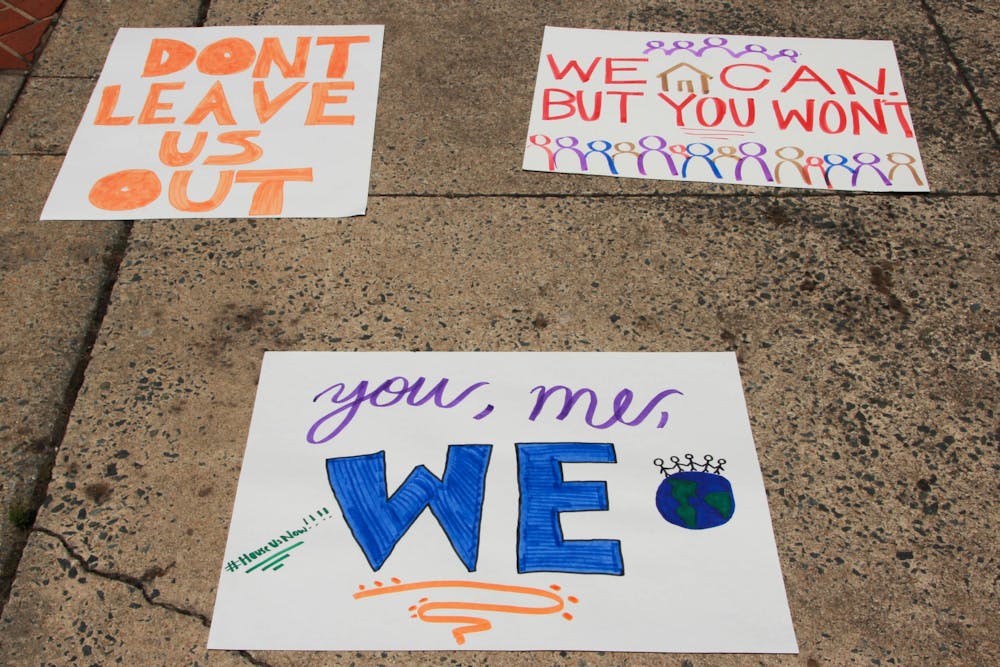 DONT
LEAVE
US
OUT
WE CAN.
BUT YOU WON'T
you, me,
WE
#HouseUsNow!!!!